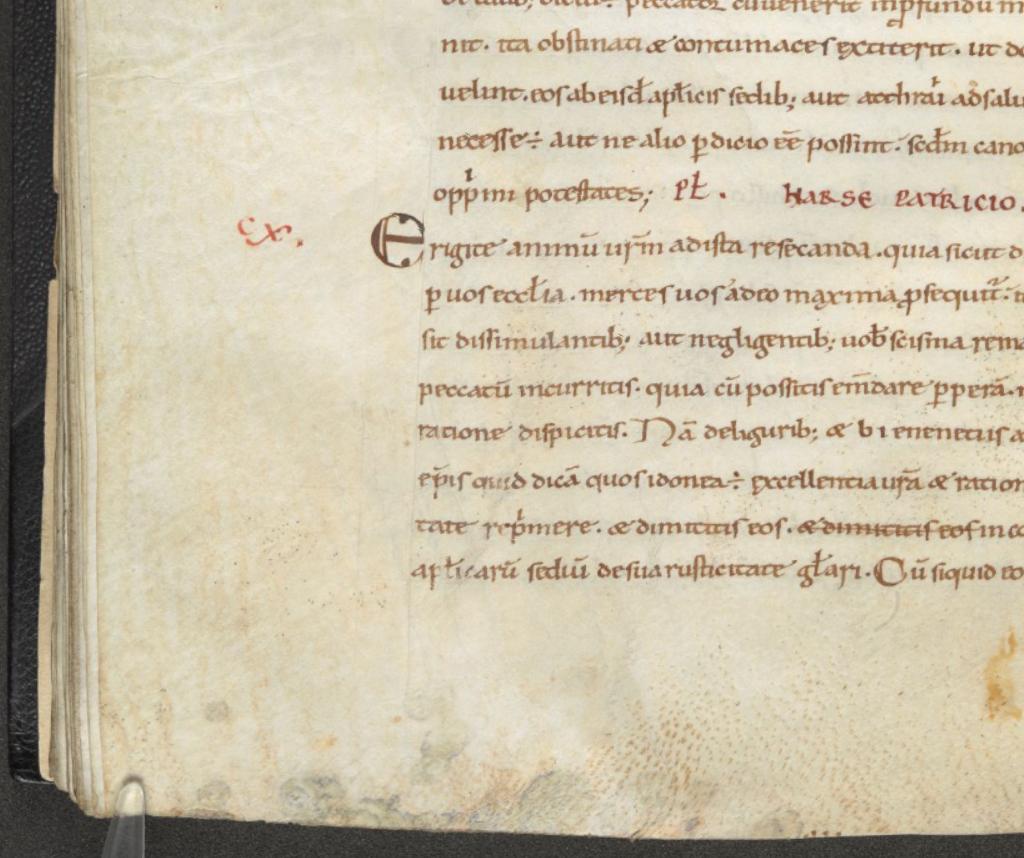 peccator cu uenerit inpfundu m
nit. ita obstinati & contumaces extiterit. ut de
uelint. eos ab eisd apłicis sedib; aut ad salu
necesse ÷ aut ne alio pdicio eē possint. scdm cano
opprimi potestates; PŁ. NARSE PATRICIO.
CX. Erigite animū urm ad ista resecanda. quia sicut d
p uos eccłia. merces uos adeo maxima psequit
sit dissimulantib; aut negligentib; uob scisma rema
peccatū incurritis. quia cū possitis emdare pperā.
ratione dispicitis. Nā de ligurib; & b i enenetiis a
epis quid dicā quos idonea ÷ excellentia urā & ration
tate reprimere. & dimittitis eos. & dimittitis eos in co
apłicarū sediū de sua rusticitate głari. Cū siquid eo